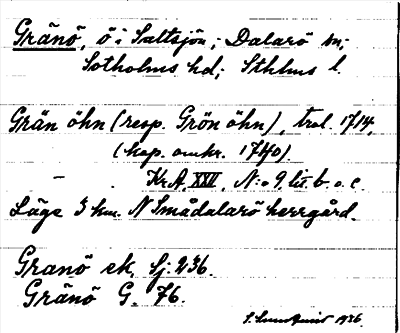 Gränö, ö i Saltsjön; Dalarö sn;
Sotholms hd; Sthlms l.
Grän öhn (resp. Grön öhn), trol. 1714,
(kop. omkr. 1740).
- Kr.A XXVI, N:o 9 lit. b. o. c.
Läge 3 km. N Smådalarö herrgård.
Granö ek, Sj. 236.
Gränö G. 76.
1926.